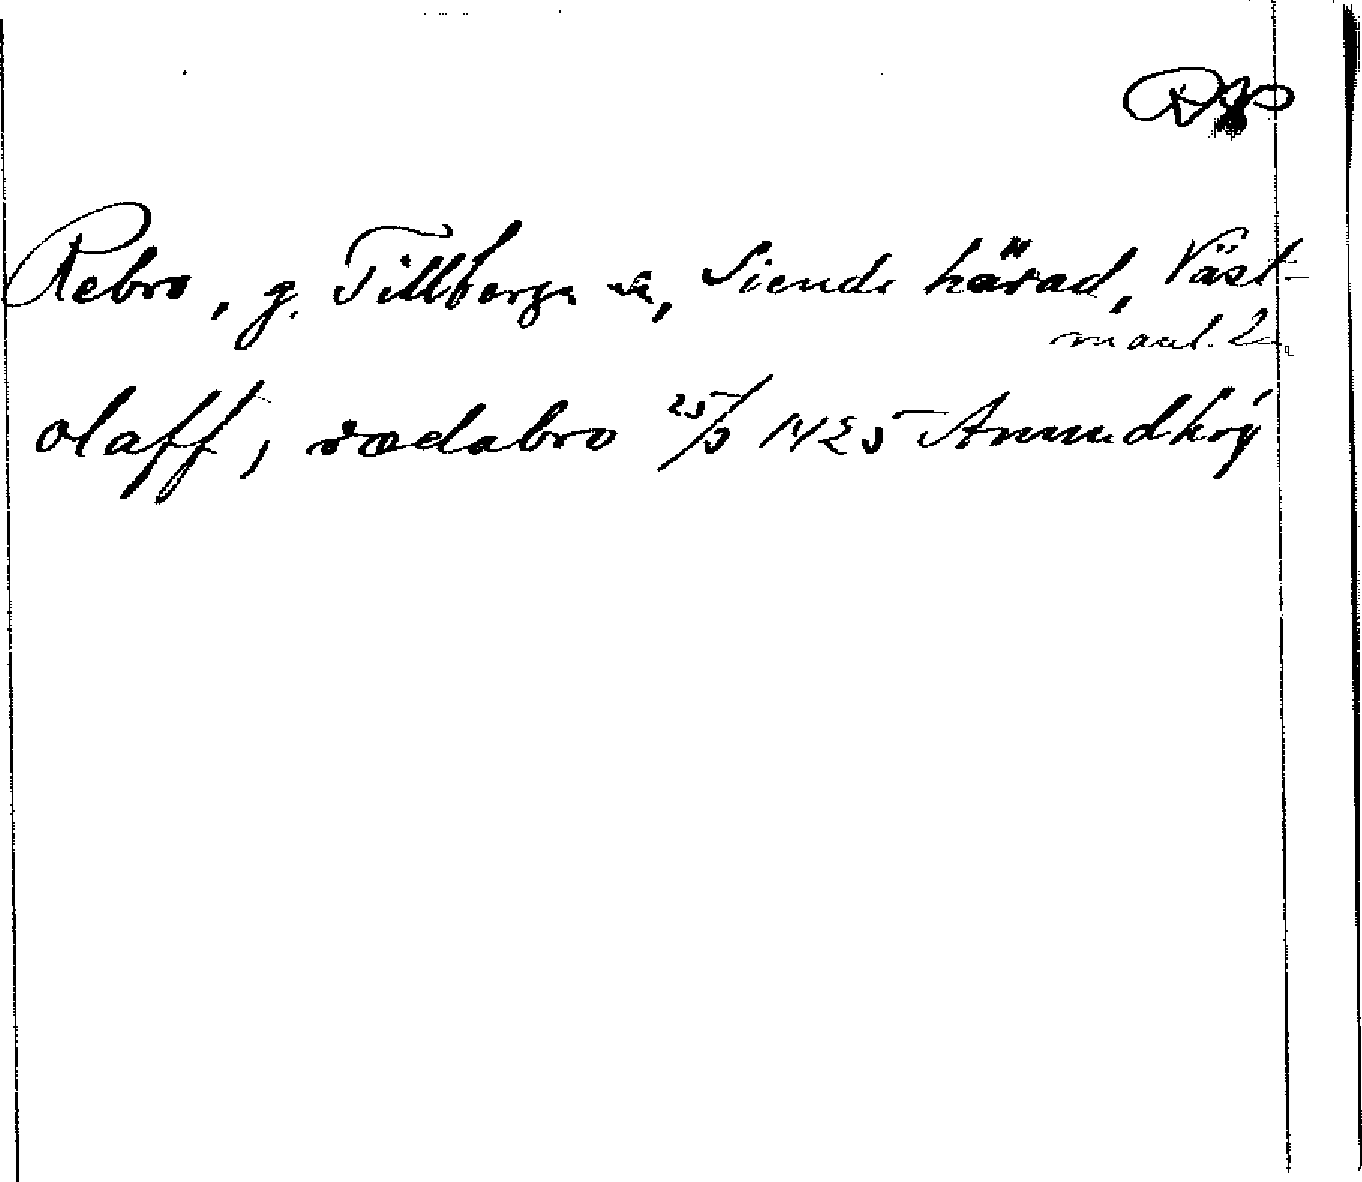 Rebro, g. Tillberga sn, Siende härad, Väst-
manl. län
olaff, i rædabro 25/5 1425 Anundhøy